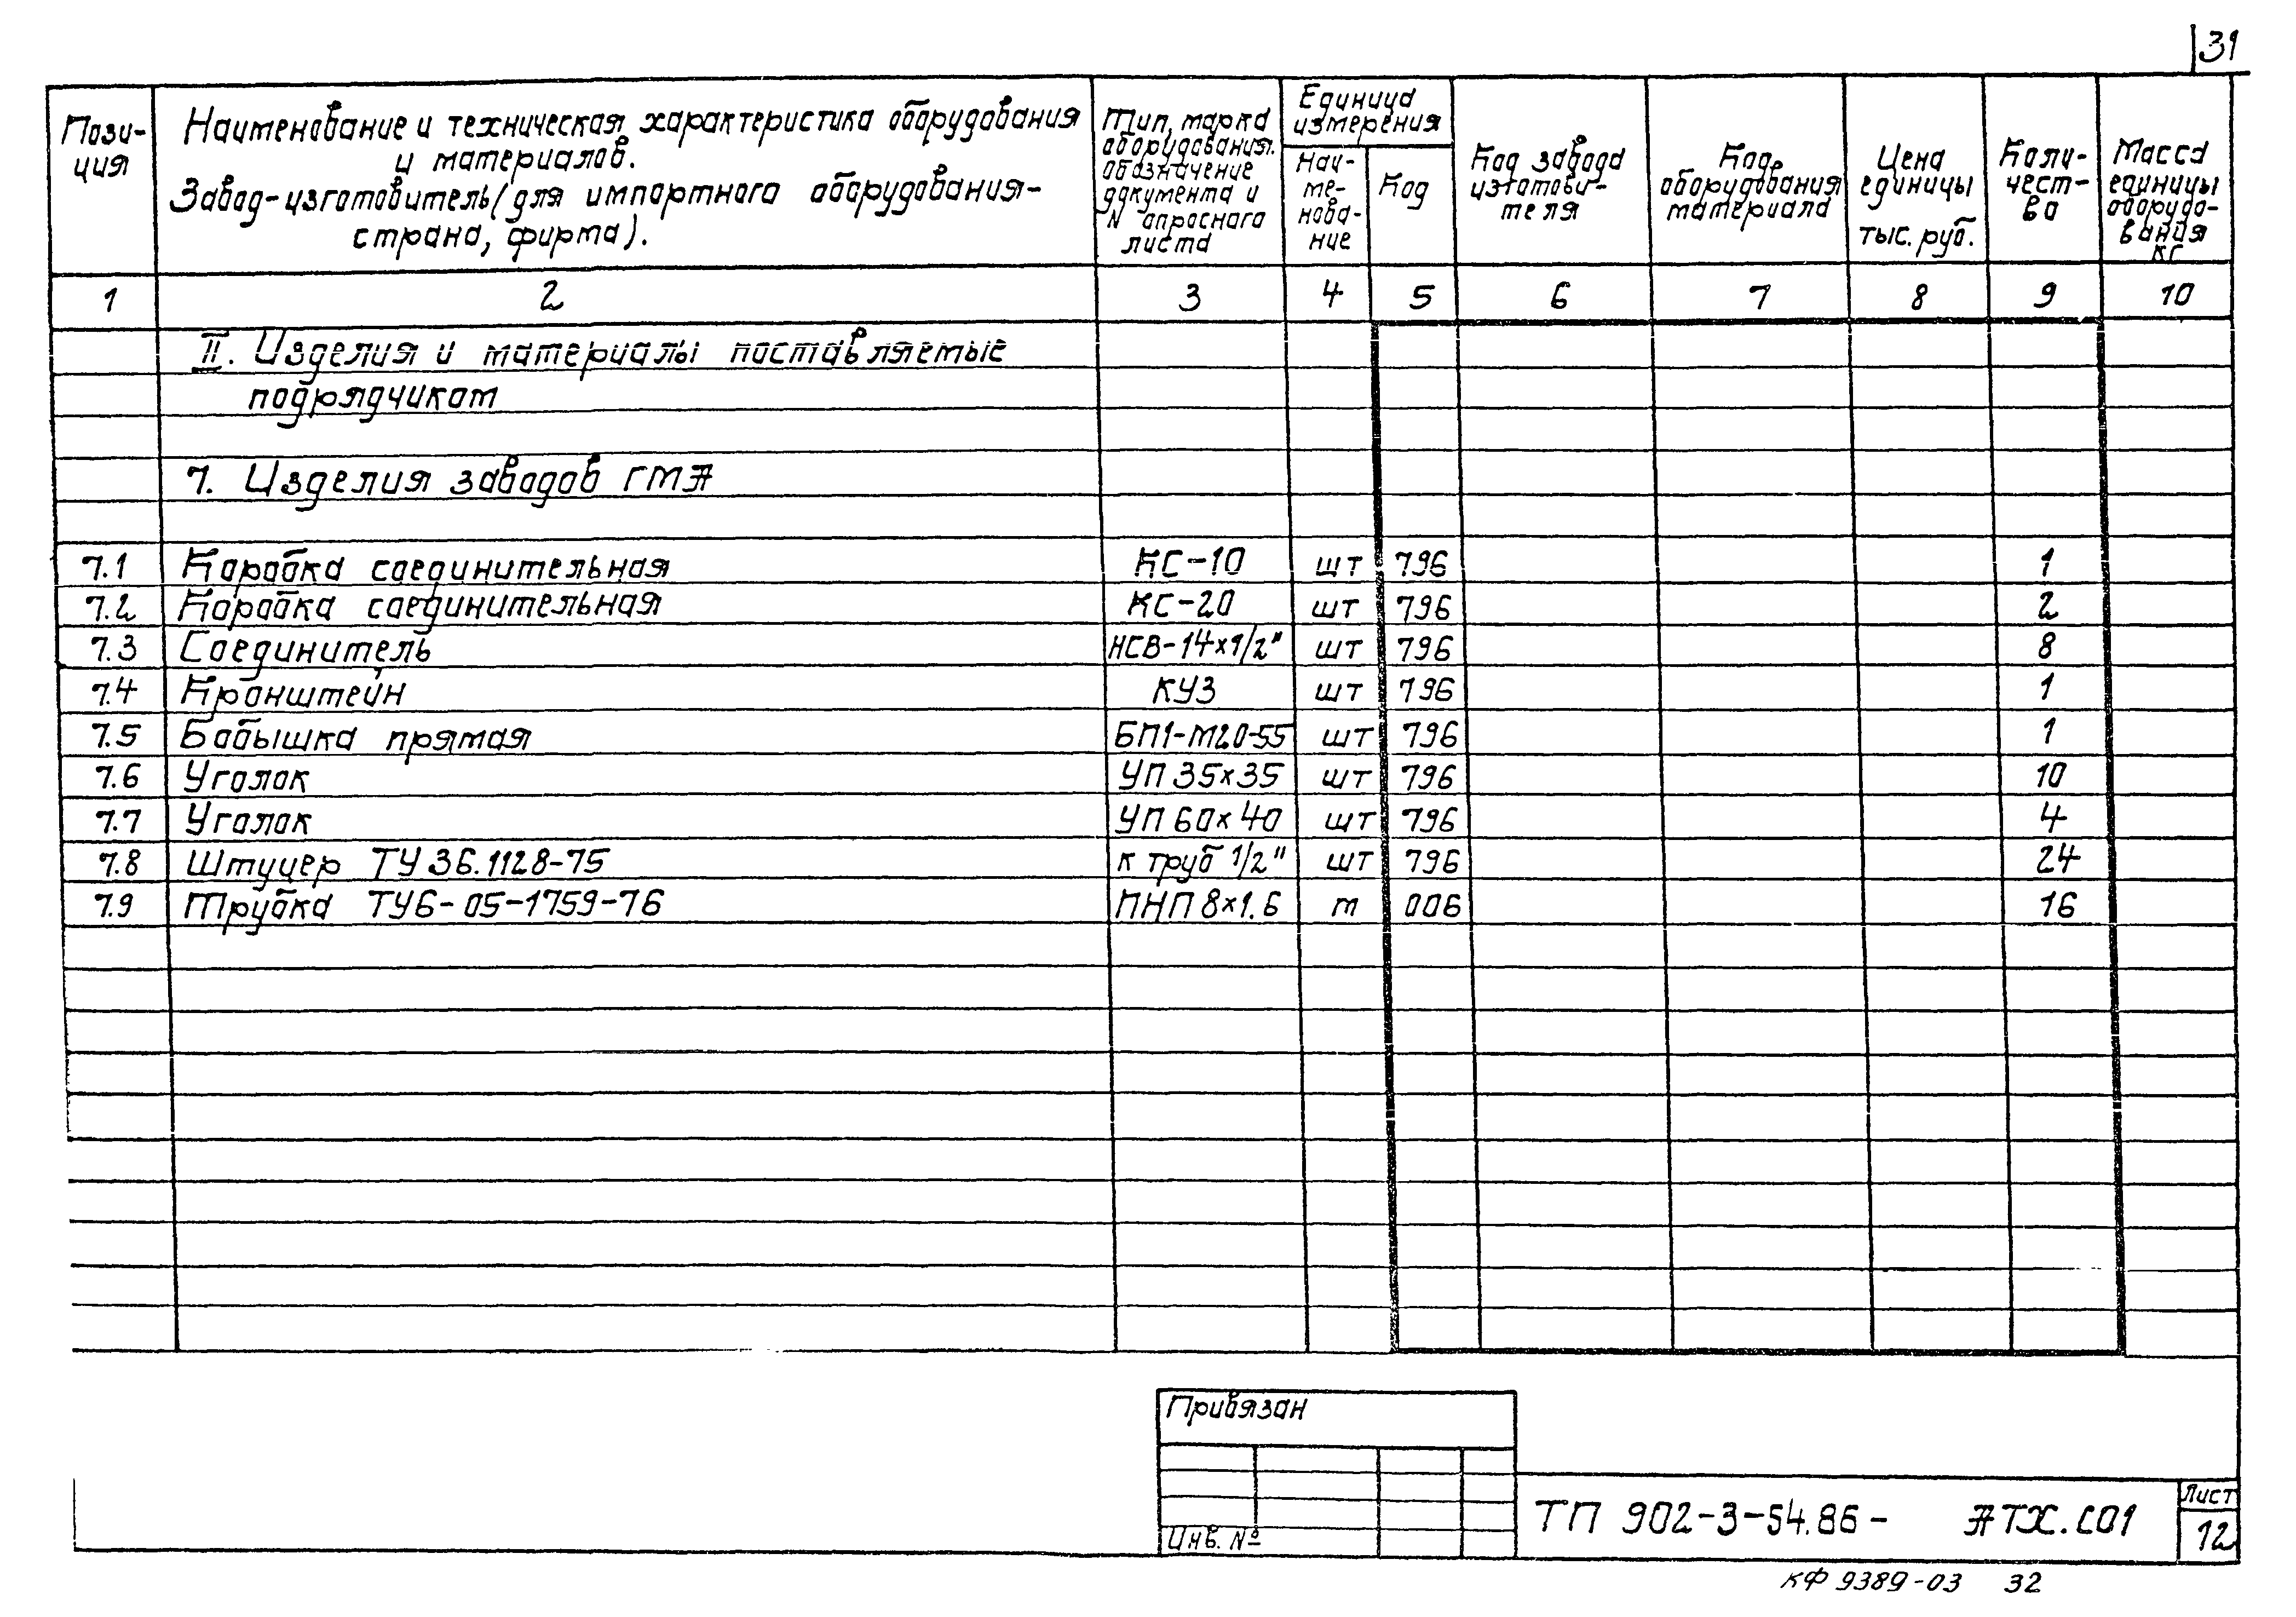 31
Пози-
ция
Наименование и техническая характеристика оборудования
и материалов.
Завод-изготовитель (для импортного оборудования-
страна, фирма).
Тип, марка
оборудования.
обозначение
документа и
N опросного
листа
Единица
измерения
Наи-
ме-
нова-
ние
Код
Код завода
изготови-
теля
Код
оборудования
материала
Цена
единицы
тыс. руб.
Коли-
чест-
ва
Масса
единицы
оборудо-
вания
кг
1 2 3 4 5 6 7 8 9 10
II. Изделия и материалы поставляемые
подрядчиком
7. Изделия заводов ГМА
7.1 Коробка соединительная КС-10 шт 796 1
7.2 Коробка соединительная КС-20 шт 796 2
7.3 Соединитель НСВ-14х1/2" шт 796 8
7.4 Кронштейн КУ3 шт 796 1
7.5 Бобышка прямая БП1-М20-55 шт 796 1
7.6 Уголок УП 35х35 шт 796 10
7.7 Уголок УП 60х40 шт 796 4
7.8 Штуцер ТУ 36.1128-75 к труб 1/2" шт 796 24
7.9 Трубка ТУ6-05-1759-76 ПНП 8х1.6 м 006 16
Привязан
Инв. №
ТП 902-3-54.86- АТХ.С01
Лист
12
КФ 9389-03 32